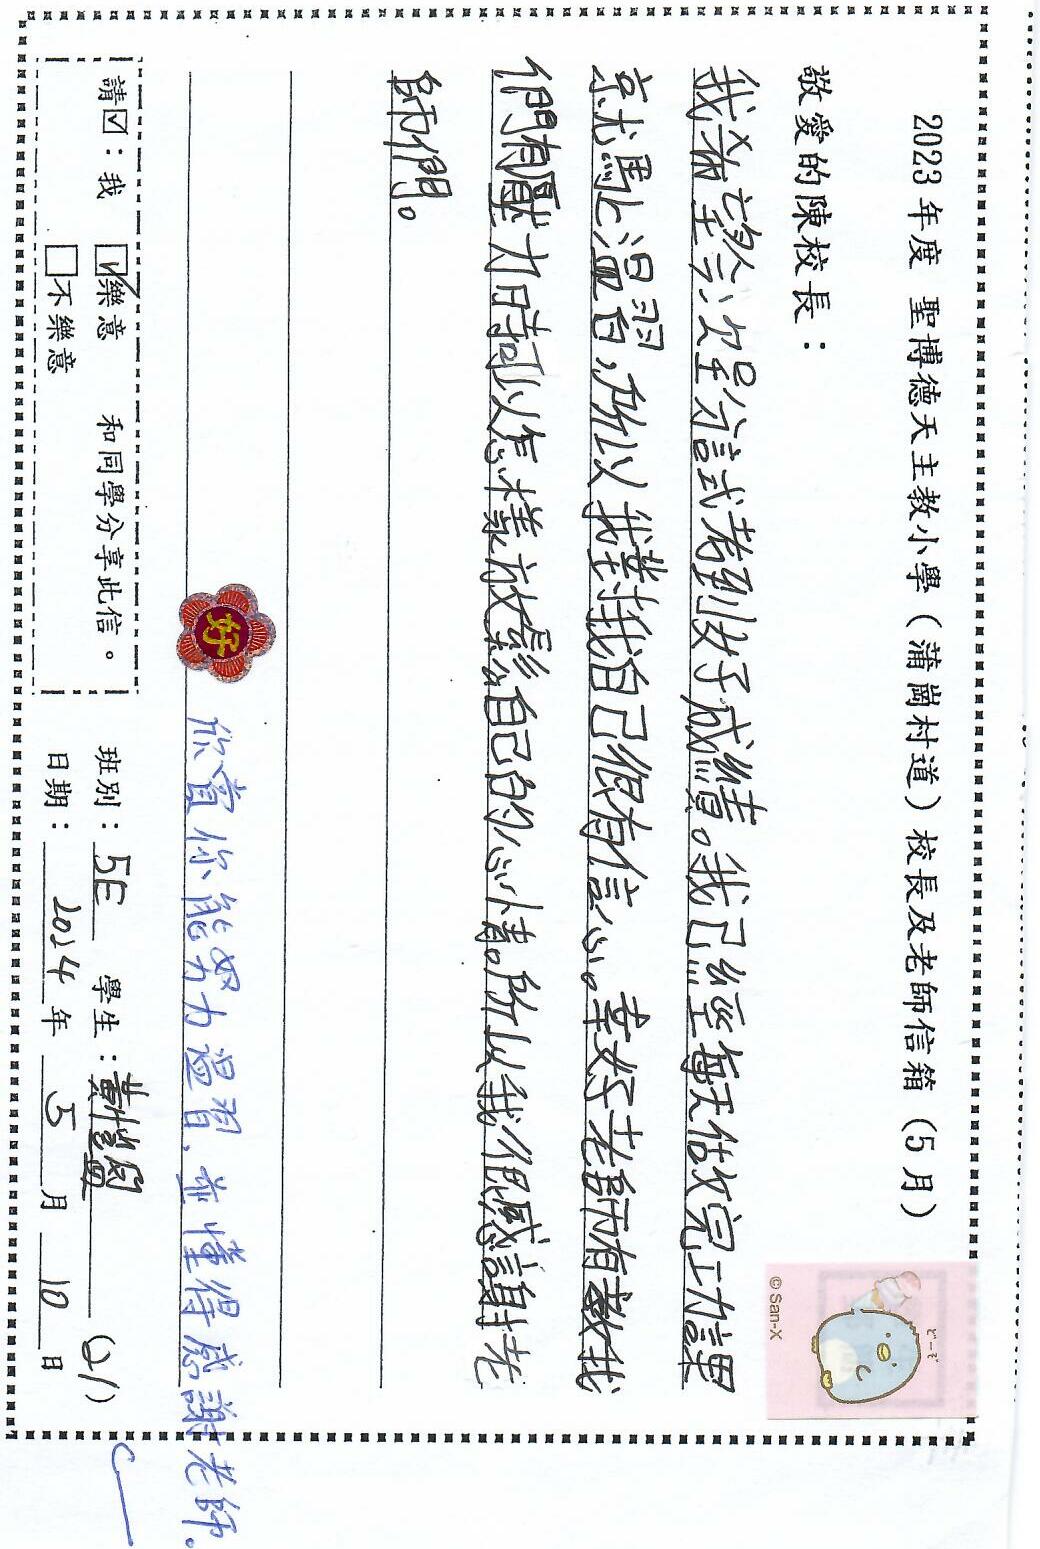 2023年度 聖博德天主教小學(蒲崗村道)校長及老師信箱(5月)
どーぞ
© San-X
敬愛的陳校長:
我希望今次呈分試考到好成績。我已經每天做完功課
就馬上溫習,所以我對我自己很有信心。幸好老師有教我
們有壓力時可以怎樣放鬆自己的心情。所以我很感謝老
師們。
好
欣賞你能努力溫習,並懂得感謝老師。
請☑:我 ☑樂意 和同學分享此信。
□不樂意
班別:5E 學生:黃 (21)
日期:2024年5月10日